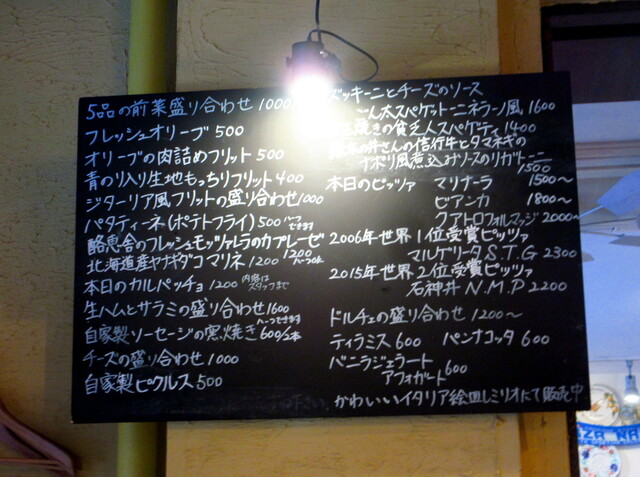 5品の前菜盛り合わせ 1000
フレッシュオリーブ 500
オリーブの肉詰めフリット 500
青のり入り生地もっちりフリット 400
ジターリア風フリットの盛り合わせ 1000
パタティーネ(ポテトフライ) 500 ハーフできます
酪恵舎のフレッシュモッツァレラのカプレーゼ
1200
北海道産ヤナギダコマリネ 1200 ハーフok
本日のカルパッチョ 1200 内容はスタッフまで
生ハムとサラミの盛り合わせ 1600
ハーフできます
自家製ソーセージの窯焼き 600/2本
チーズの盛り合わせ 1000
自家製ピクルス 500
ズッキーニとチーズのソース
太スパゲットーニネラーノ風 1600
焼きの貧乏人スパゲティ 1400
井さんの信行牛とタマネギの
ナポリ風煮込みソースのリガトーニ
1500
本日のピッツァ マリナーラ 1500〜
ビアンカ 1800〜
クアトロフォルマッジ 2000〜
2006年世界1位受賞ピッツァ
マルゲリータS.T.G 2300
2015年世界2位受賞ピッツァ
石神井 N.M.P 2200
ドルチェの盛り合わせ 1200〜
ティラミス 600 パンナコッタ 600
バニラジェラート
アフォガート 600
かわいいイタリア絵皿レミリオにて販売中